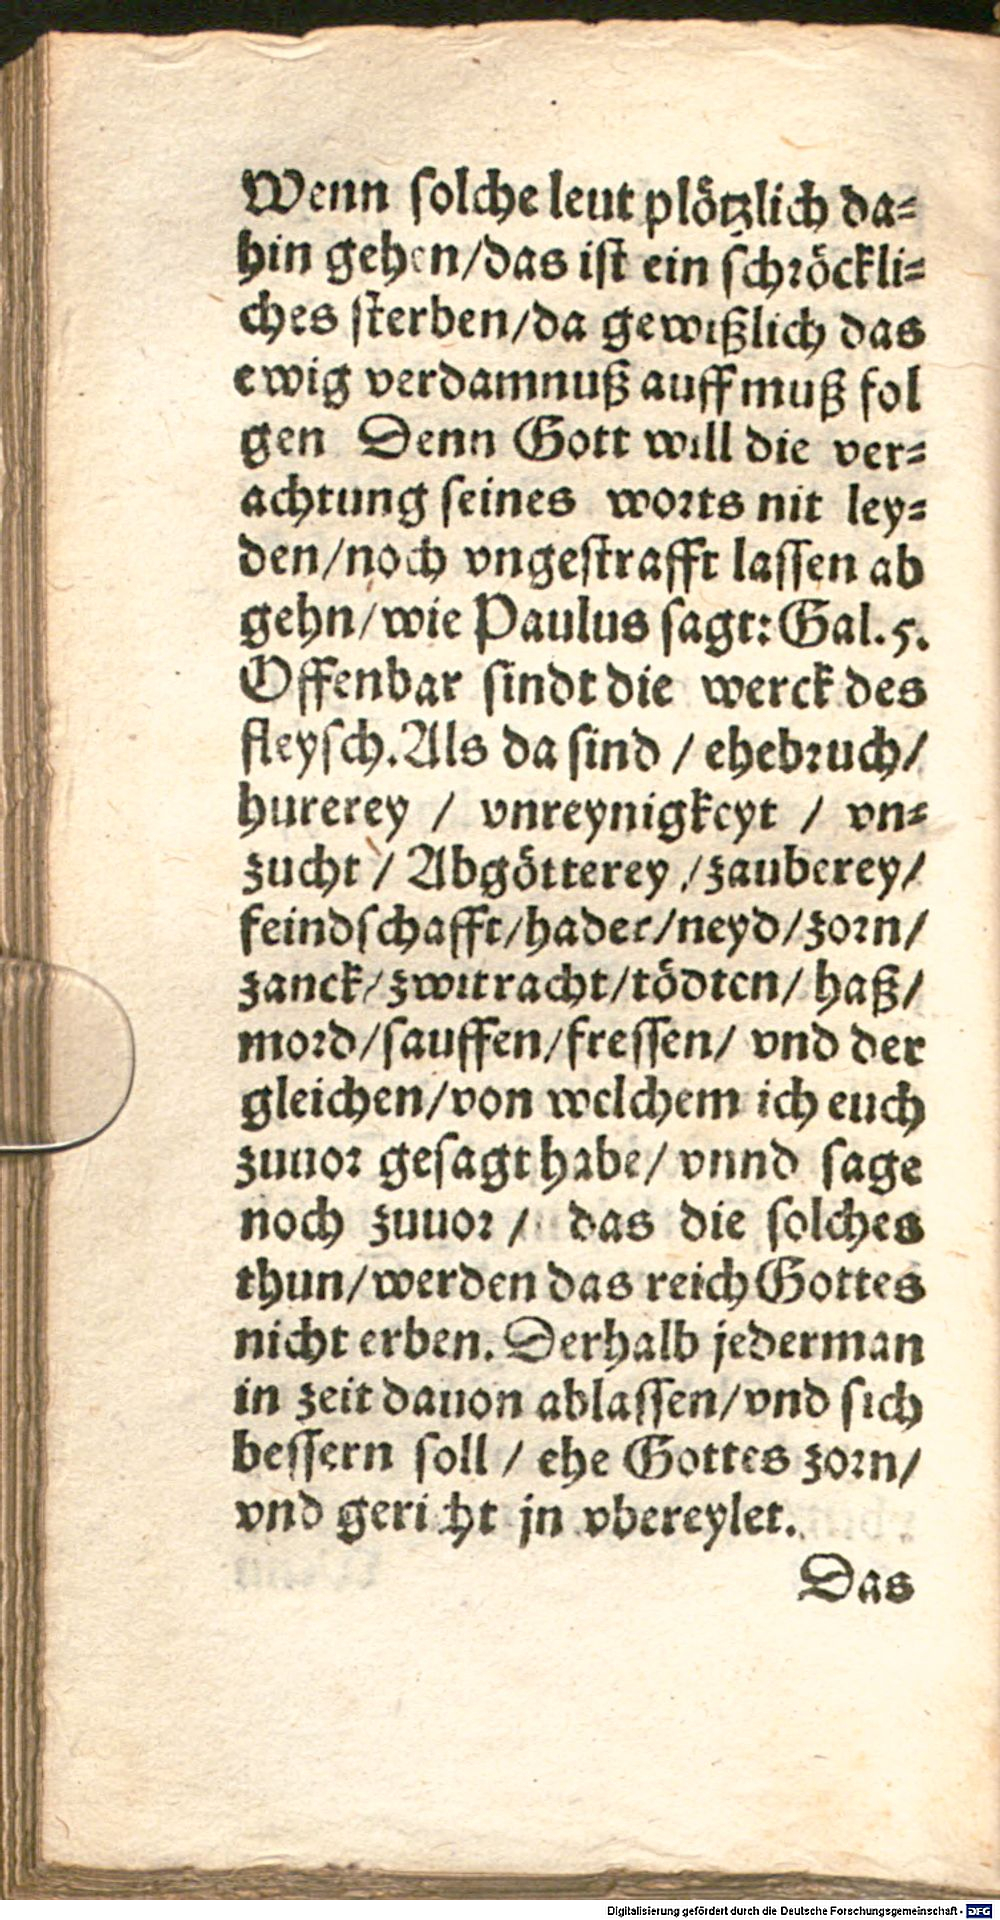 Wenn ſolche leut plötzlich da⸗
hin gehen/das iſt ein ſchröckli⸗
ches ſterben/da gewißlich das
ewig verdamnuß auff muß fol
gen Denn Gott will die ver⸗
achtung ſeines worts nit ley⸗
den/noch vngeſtrafft laſſen ab
gehn/wie Paulus ſagt: Gal. 5.
Offenbar ſindt die werck des
fleyſch. Als da ſind / ehebruch/
hurerey / vnreynigkeyt / vn⸗
zucht / Abgötterey / zauberey/
feindſchafft/hader/neyd/zorn/
zanck/zwitracht/tödten/haß/
mord/ſauffen/freſſen/ vnd der
gleichen/von welchem ich euch
zuuor geſagt habe/ vnnd ſage
noch zuuor / das die ſolches
thun/werden das reich Gottes
nicht erben. Derhalb jederman
in zeit dauon ablaſſen/vnd ſich
beſſern ſoll / ehe Gottes zorn/
vnd gericht jn vbereylet.
Das
Digitalisierung gefördert durch die Deutsche Forschungsgemeinschaft - DFG